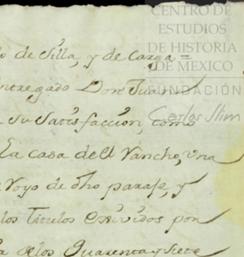 CENTRO DE
ESTUDIOS
DE HISTORIA
DE MEXICO
FUNDACIÓN
Carlos Slim
de Silla, y de Carga =
entregado Don
Su Satisfaccion, como
La casa del Rancho, Una
Royo de dho paraje, y
los Titulos por
de los Quarenta y Siete